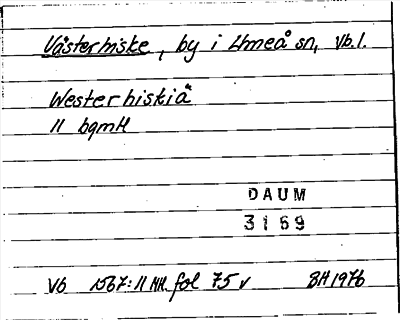 Västerhiske, by i Umeå sn, Vb.l.
Westerhiskiå
11 bgmtl
DAUM
3169
Vb 1567:11 MH. fol 75 v BH 1976